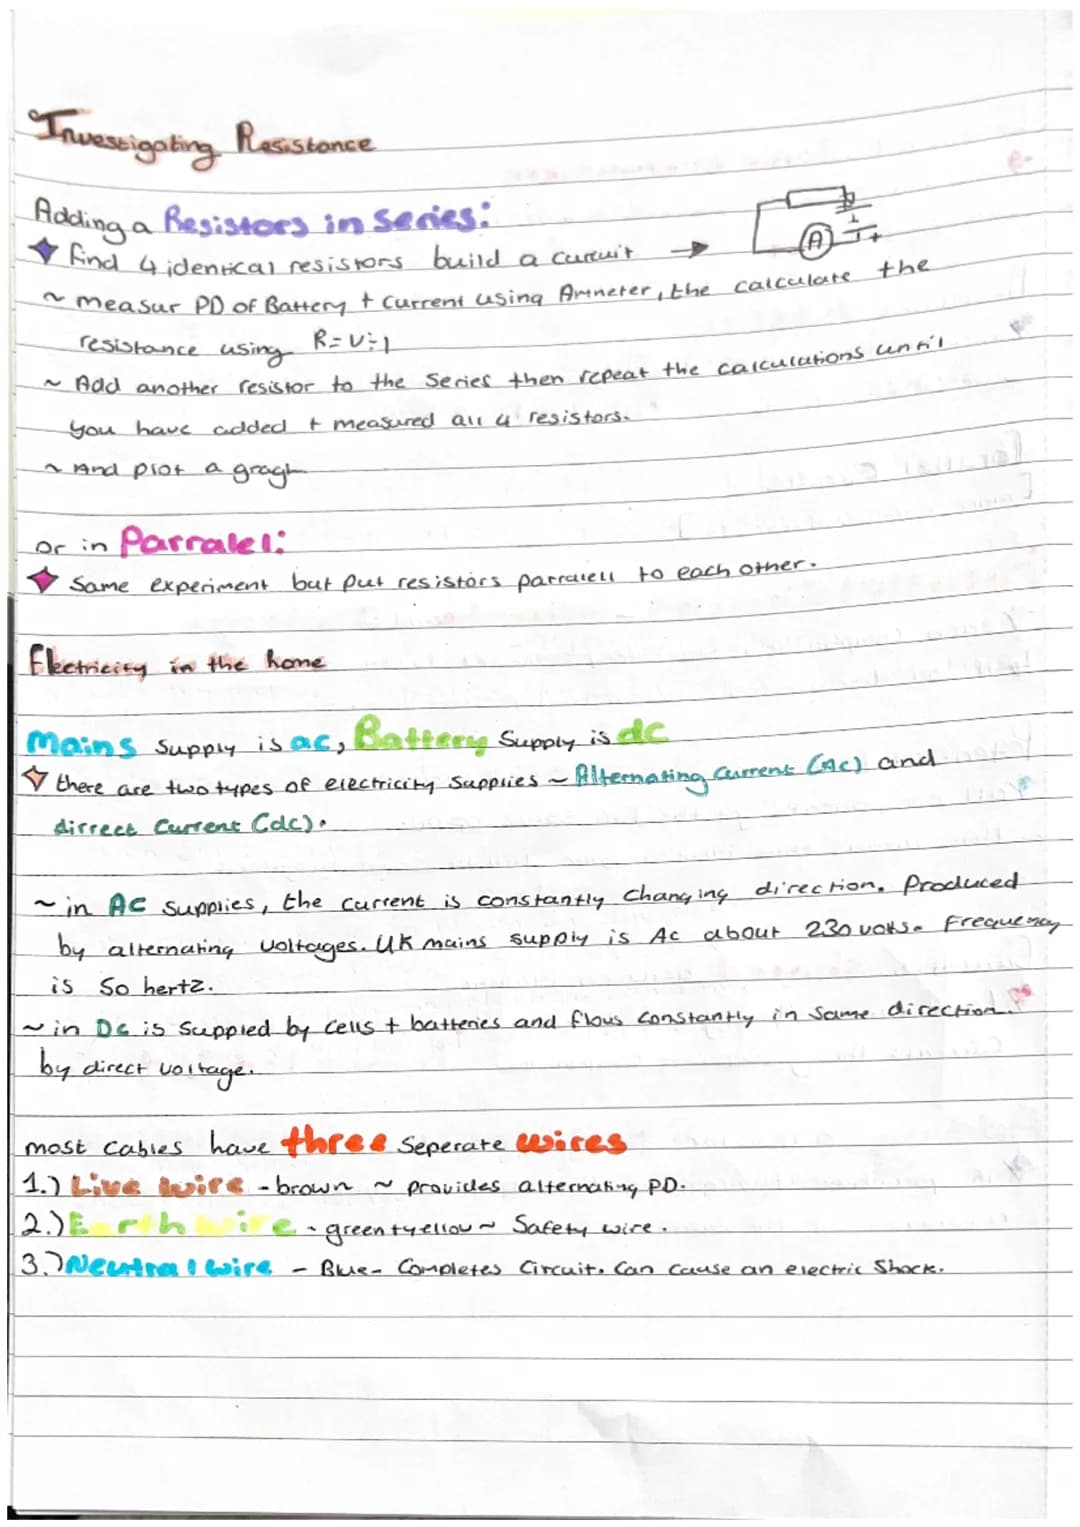 Investigating Resistance
Adding a Resistors in series:
find 4 identical resistors build a curcuit →
A
+
~ measur PD of Battery + current using Ammeter, the calculate the
resistance using R=V÷I
~ Add another resistor to the series then repeat the calculations until
you have added + measured all 4 resistors.
~ And plot a gragh
or in Parralel:
Same experiment but put resistors parralell to each other.
Electricity in the home
Mains supply is ac, Battery supply is dc
there are two types of electricity supplies ~ Alternating Current (Ac) and
dirrect current (dc).
~ in AC supplies, the current is constantly changing direction. Produced
by alternating voltages. UK mains supply is Ac about 230 volts. Frequency
is 50 hertz.
~ in DC is suppied by cells + batteries and flows constantly in same direction.
by direct voltage.
most cables have three seperate wires
1.) Live wire - brown ~ provides alternating PD.
2.) Earth wire - green+yellow ~ Safety wire.
3.) Neutral wire - Blue - Completes circuit. Can cause an electric shock.